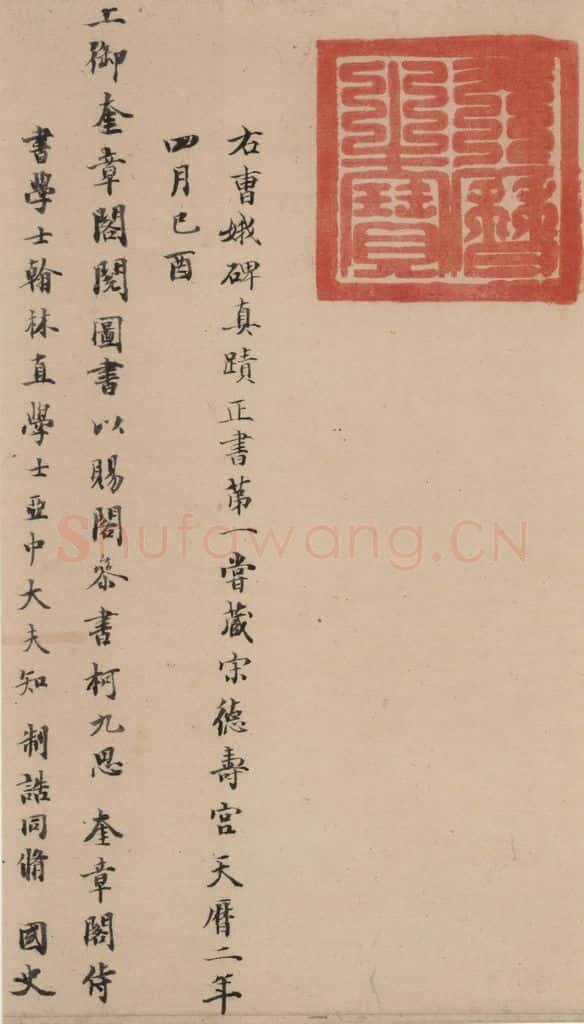 天曆之寶
右曹娥碑真蹟正書第一嘗藏宋德壽宫天曆二年
四月己酉
上御奎章閣閱圖書以賜閣叅書柯九思 奎章閣侍
書學士翰林直學士亞中大夫知 制誥同脩 國史
Shufawang.CN